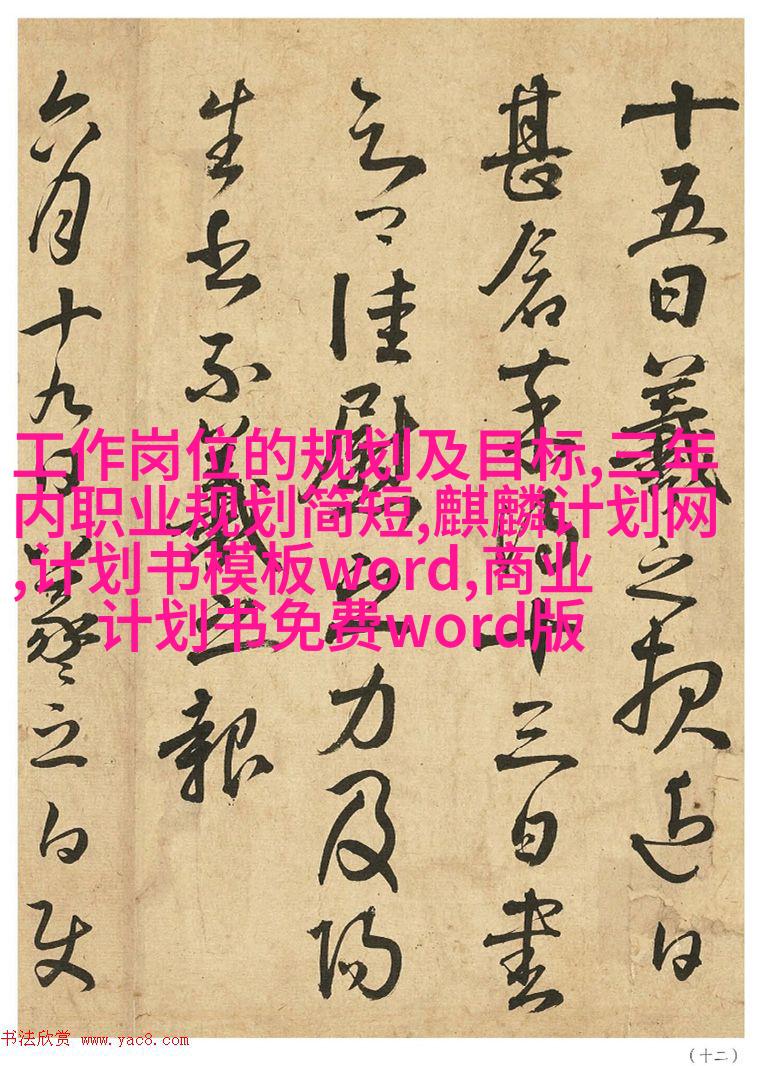 十五日羲之頓近日
甚念十三日書
佳慰力及
生不羲之報
六月十九日羲之白使
工作岗位的规划及目标,三年
内职业规划简短,麒麟计划网
,计划书模板word,商业
计划书免费word版
书法欣赏 www.yac8.com
(十二)